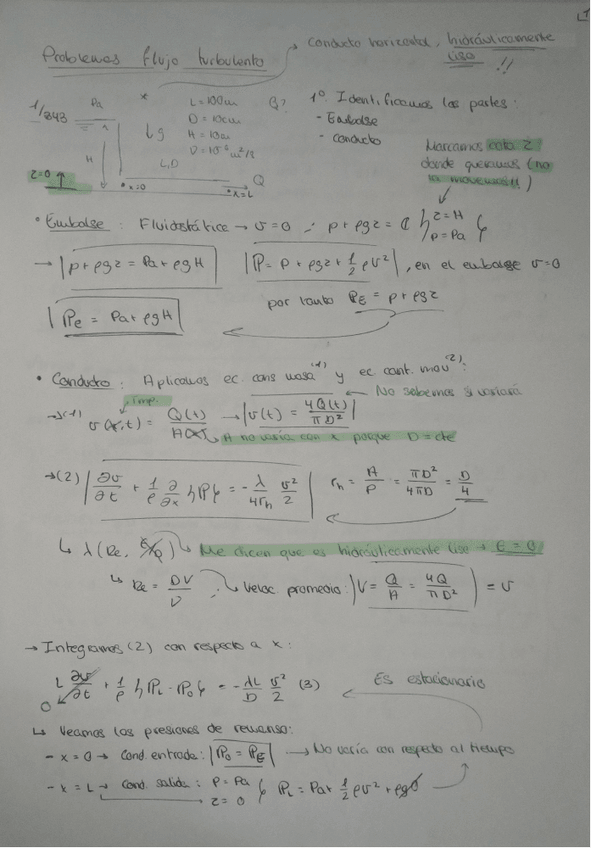 1
Problemas flujo turbulento → Conducto horizontal, hidráulicamente liso !!
1/343
Pa
*
L = 100m
Q?
D = 10cm
H = 10m
ν = 10⁻⁶ m²/s
↓g
H
L,D
Q
z=0 ↑
x=0
x=L
1º Identificamos las partes:
- Embalse
- Conducto
Marcamos cota z
donde queramos (no
la movemos!!)
• Embalse: Fluidostática → v=0 ∴ p + ρgz = C { z=H
p=Pa }
→ | p + ρgz = Pa + ρgH | | ℙ = p + ρgz + 1/2 ρv² |, en el embalse v=0
por tanto ℙE = p + ρgz
| ℙE = Pa + ρgH |
• Conducto: Aplicamos ec. cons masa (1) y ec. cant. mov (2):
No sabemos si variará
Imp.
→ (1) v(x,t) = Q(t)/A(x) → | v(t) = 4Q(t)/πD² |
A no varía con x porque D = cte
→ (2) | ∂v/∂t + 1/ρ ∂/∂x {ℙ} = -λ/4rh v²/2 | rh = A/P = πD²/4πD = D/4
↳ λ(Re, ε/D) → Me dicen que es hidráulicamente liso → ε = 0
↳ Re = DV/ν ; ↳ Veloc. promedio: | V = Q/A = 4Q/πD² | = v
→ Integramos (2) con respecto a x:
L ∂v/∂t + 1/ρ {ℙL - ℙ0} = -λL/D v²/2 (3)
0
Es estacionario
↳ Veamos las presiones de remanso:
- x = 0 → Cond. entrada: | ℙ0 = ℙE | → No varía con respecto al tiempo
- x = L → Cond. salida: P = Pa
z = 0 } ℙL = Pa + 1/2 ρv² + ρg0